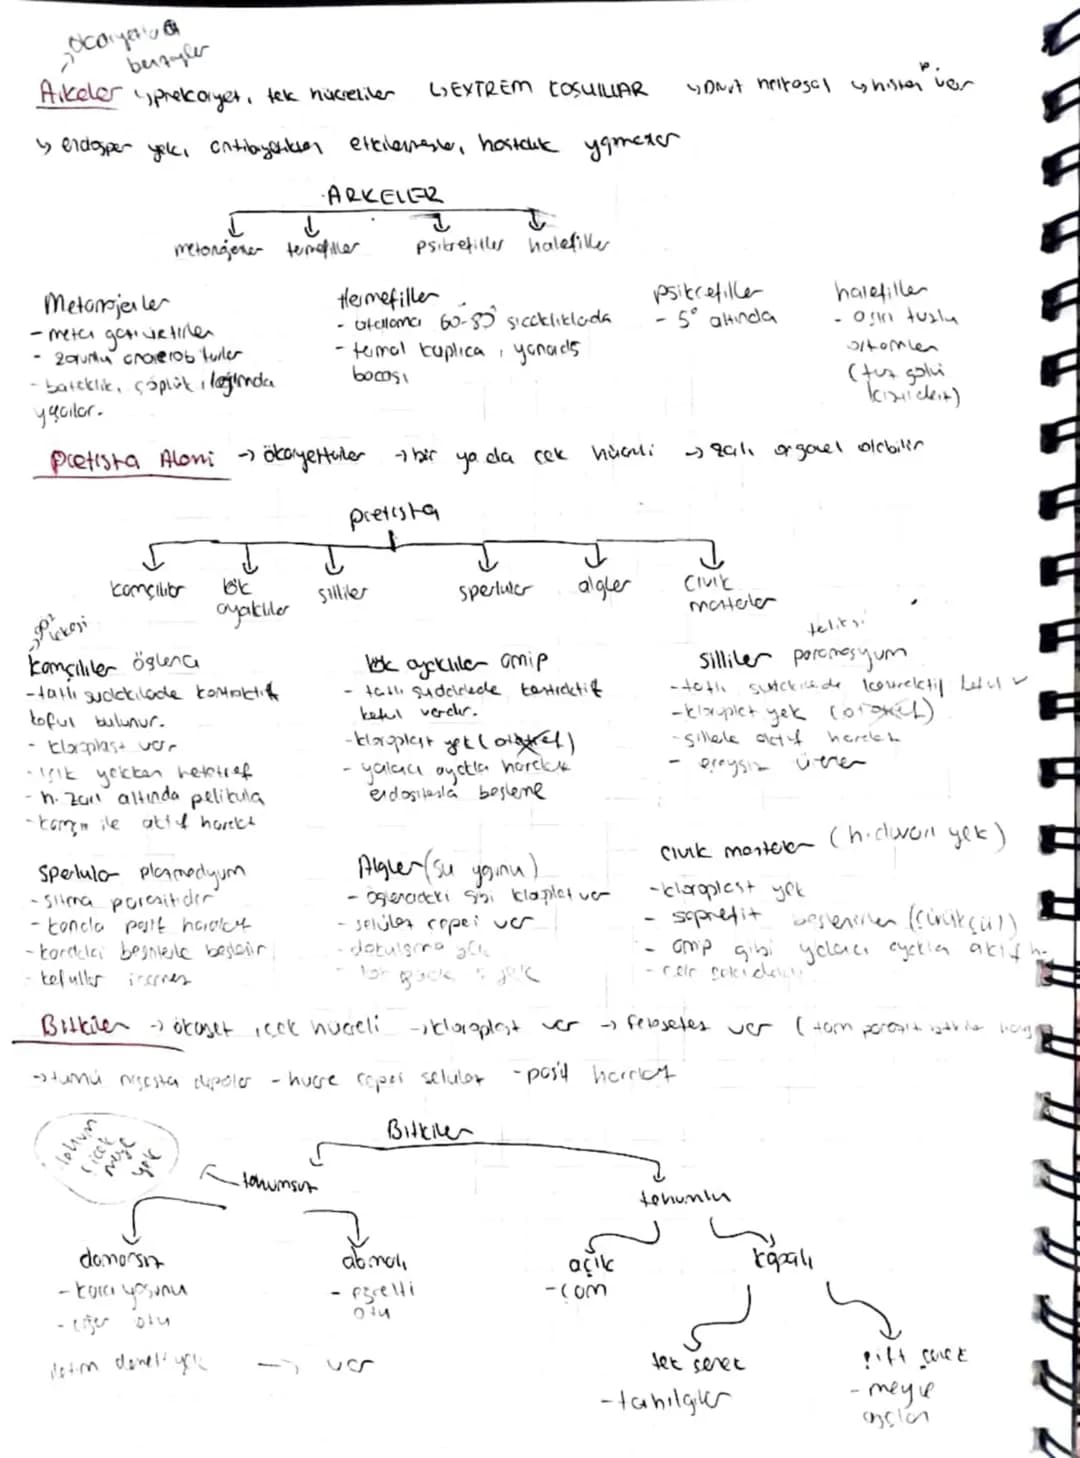 → ökaryotlara
benzerler
Arkeler ↳ prokaryot, tek hücreliler ↳ EXTREM KOŞULLAR ↳ DNA'sı halkasal ↳ histon p. var
↳ endospor yok, antibiyotikten etkilenmezler, hastalık yapmazlar
ARKELER
metanojenler termofiller psikrofiller halofiller
Metanojenler
- metan gazı üretirler
- zorunlu anaerob türler
- bataklık, çöplük, lağımda
yaşarlar.
Termofiller
- ortalama 60-80° sıcaklıklarda
- termal kaplıca, yanardağ
bacası
psikrofiller
- 5° altında
halofiller
- aşırı tuzlu
ortamlar
(tuz gölü
kızıldeniz)
Protista Alemi → ökaryotturlar → bir ya da çok hücreli → zarlı organel olabilir
protista
kamçılılar kök ayaklılar silliler sporlular algler cıvık mantarlar
→ göz lekesi
kamçılılar öglena
- tatlı sudakilerde kontraktil
koful bulunur.
- kloroplast var
- ışık yokken heterotrof
- h. zarı altında pelikula
- kamçı ile aktif hareket
kök ayaklılar amip
- tatlı sudakilerde kontraktil
koful vardır.
- kloroplast yok (ototrof)
- yalancı ayakla hareket
endositozla beslenme
terliksi
silliler paramesyum
- tatlı sudakilerde kontraktil koful ✓
- kloroplast yok (ototrof)
- sillerle aktif hareket
- eşeysiz ürer
sporlular plazmodyum
- sıtma parazitidir
- kanda pasif hareket
- kandaki besinlerle beslenir
- kofullar içermez
Algler (su yosunu)
- öglenadaki gibi kloroplast var
- selüloz çeper var
- dokulaşma yok
cıvık mantarlar (h. duvarı yok)
- kloroplast yok
- saprofit beslenirler (çürükçül)
- amip gibi yalancı ayakla aktif h.
Bitkiler → ökaryot, çok hücreli → kloroplast var → fotosentez var (tam parazit bitkiler hariç
→ tümü nişasta depolar - hücre çeperi selüloz - pasif hareket
Bitkiler
tohum
çiçek
meyve
yok
tohumsuz tohumlu
damarsız
- kara yosunu
- ciğer otu
iletim demeti yok → var
damarlı
- eğrelti
otu
açık
- çam
kapalı
tek çenek
- tahılgiller
çift çenek
- meyve
ağaçları